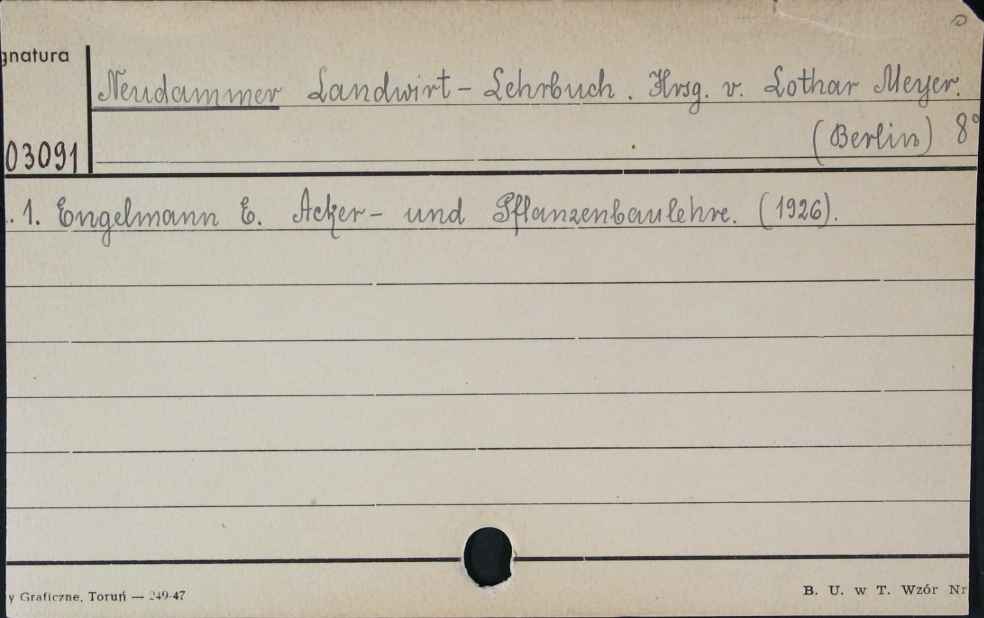 gnatura
Neudammer Landwirt - Lehrbuch. Hrsg. v. Lothar Meyer.
03091
(Berlin) 8°
. 1. Engelmann E. Acker - und Pflanzenbaulehre. (1926).
y Graficzne, Toruń — 249-47
B. U. w T. Wzór Nr